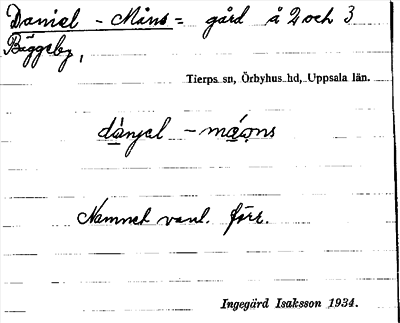 Daniel - Måns = gård å 2 och 3
Bäggeby,
Tierps sn, Örbyhus hd, Uppsala län.
dànjel - má̤o̤ns
Namnet vanl. förr.
Ingegärd Isaksson 1934.